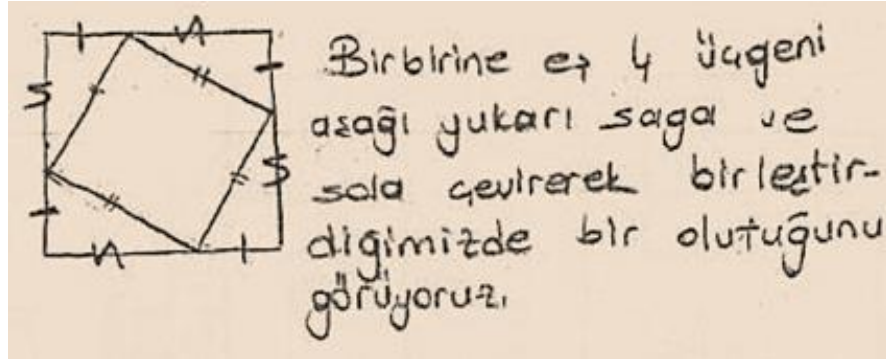 Birbirine eş 4 üçgeni
aşağı yukarı saga ve
sola çevirerek birleştir-
diğimizde bir olutuğunu
görüyoruz.